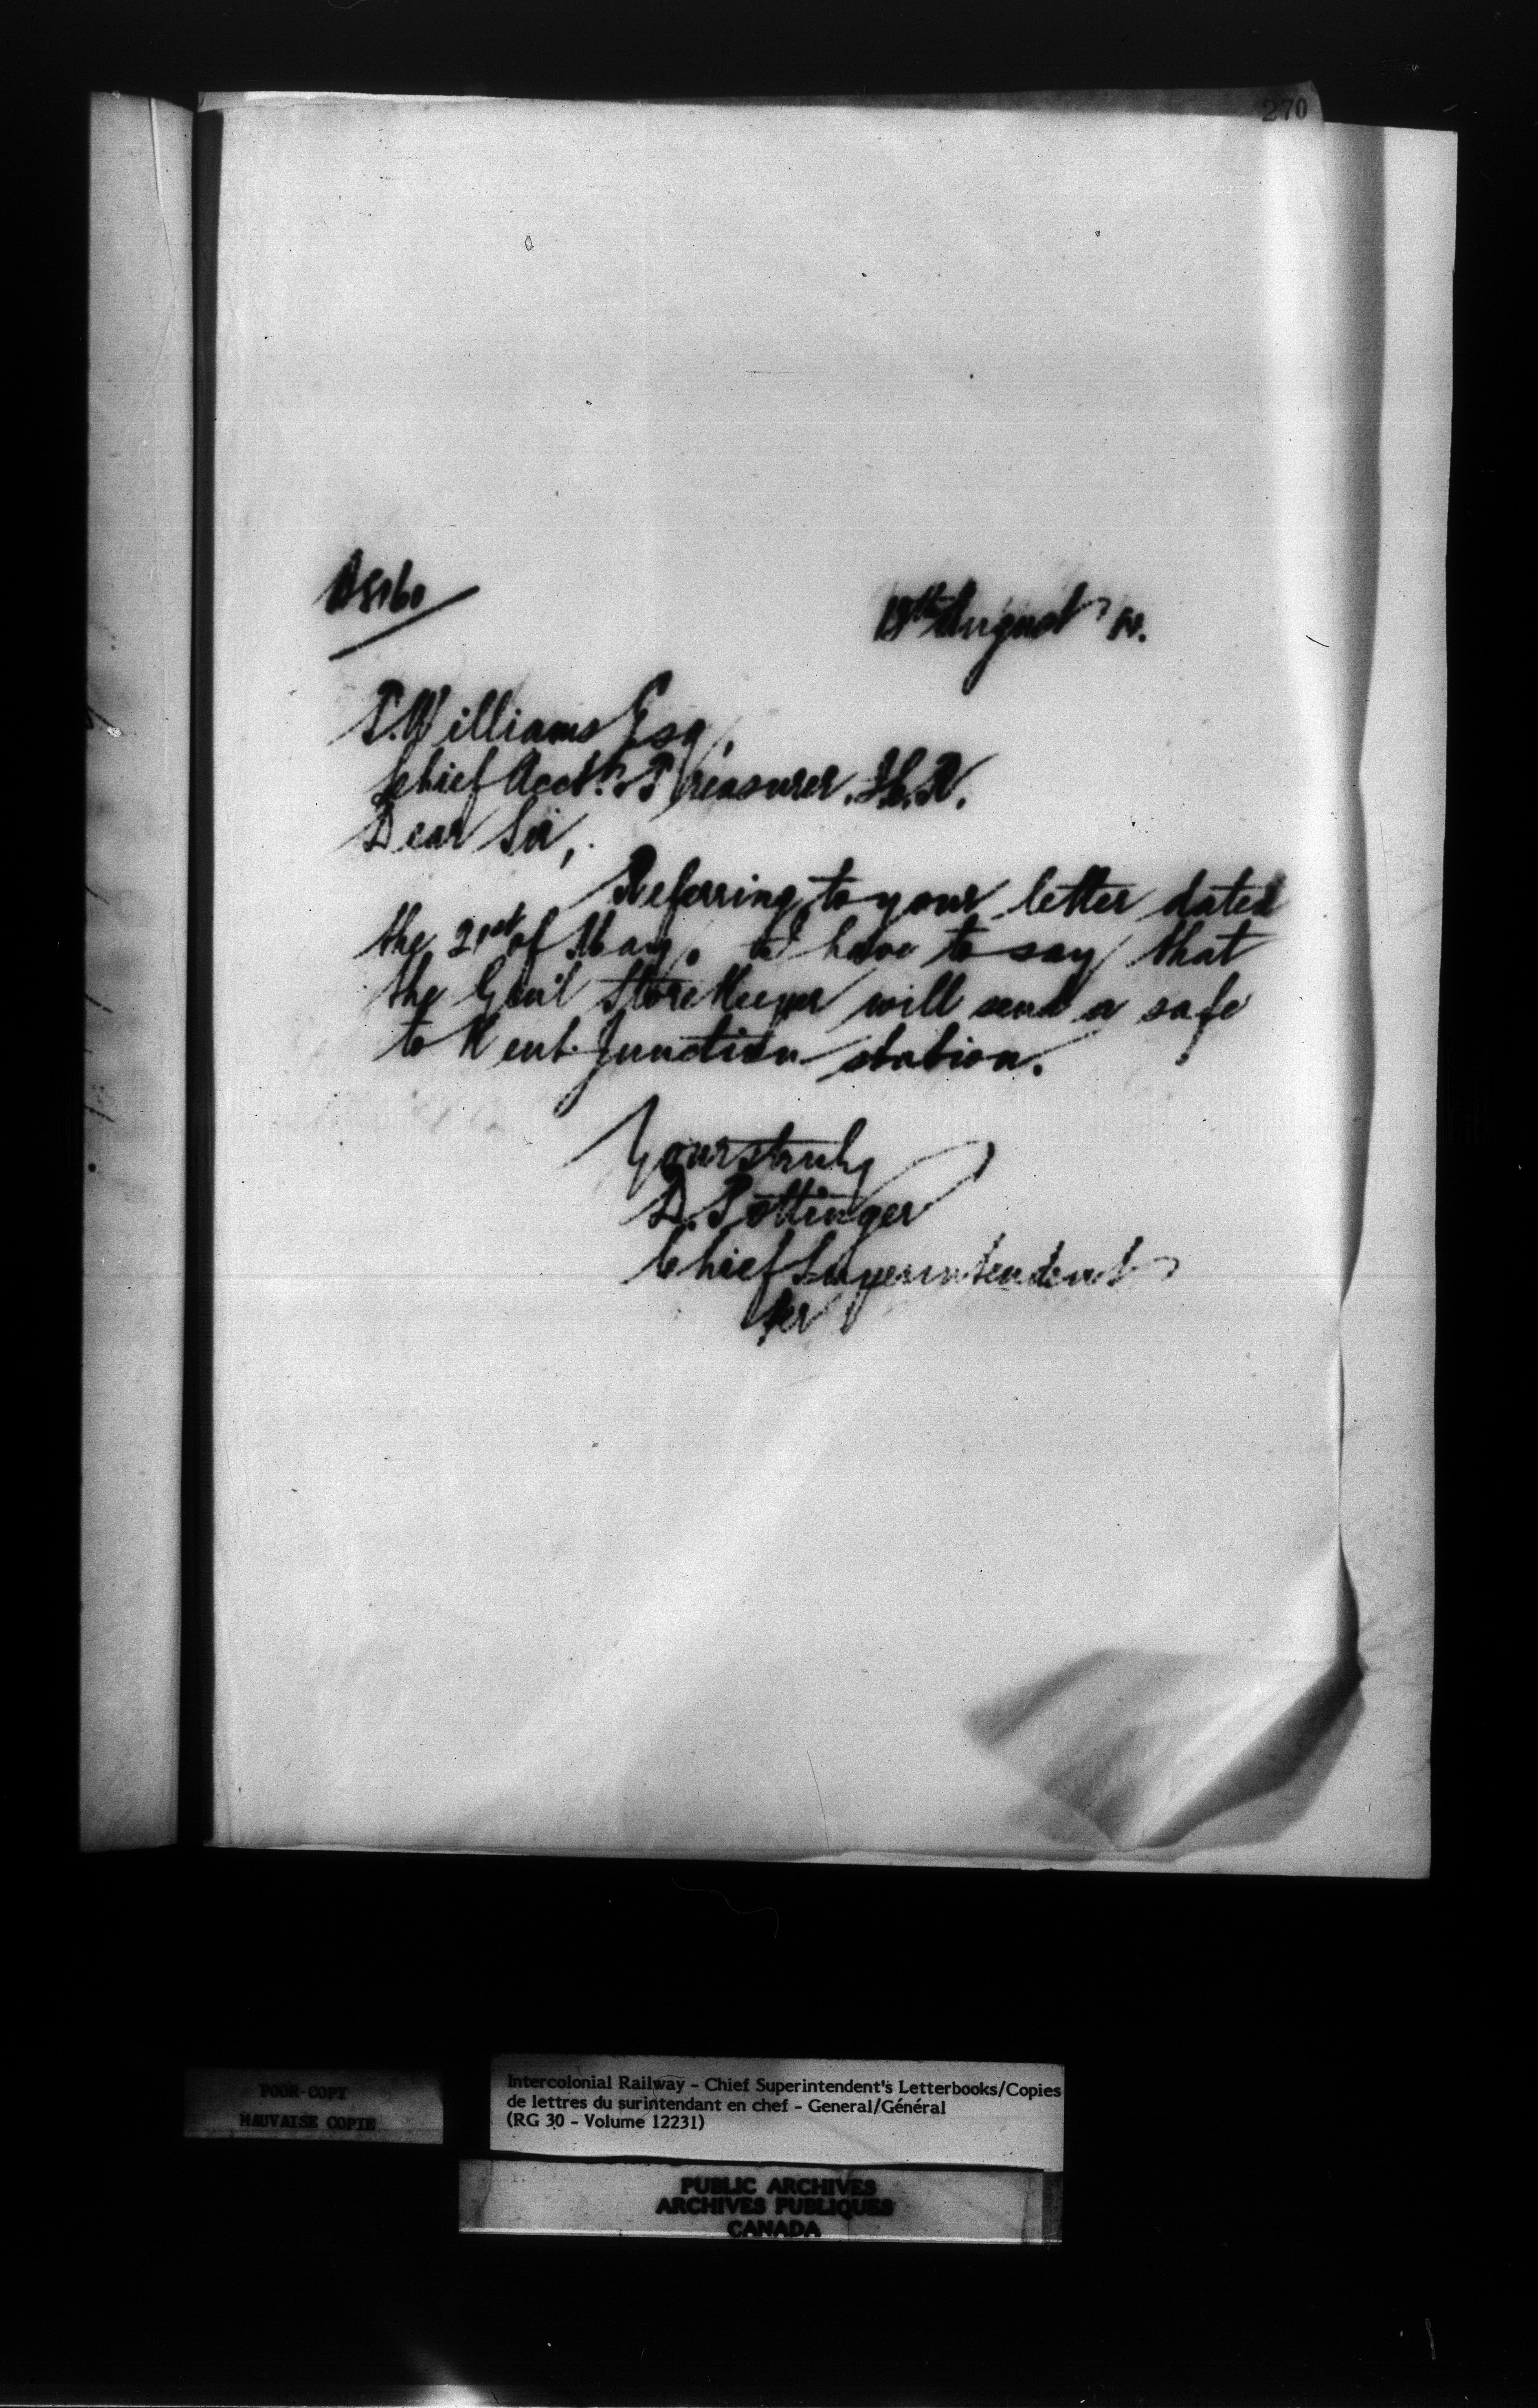 270
18th August
T. Williams Esq,
Chief Acct. & Treasurer. I.C.R.
Dear Sir,
Referring to your letter dated
the 21st of May. I have to say that
the Gen'l StoreKeeper will send a safe
to Kent Junction station.
Yours truly
D. Pottinger
Chief Superintendent
per
POOR COPY
MAUVAISE COPIE
Intercolonial Railway - Chief Superintendent's Letterbooks/Copies
de lettres du surintendant en chef - General/Général
(RG 30 - Volume 12231)
PUBLIC ARCHIVES
ARCHIVES PUBLIQUES
CANADA